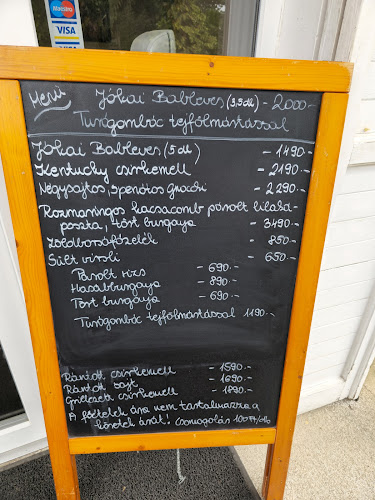 Maestro
VISA
VISA
Menü
Jókai Bableves (3,5dl) - 2000.-
Turógombóc tejfölmártással
Jókai Bableves (5dl) - 1490.-
Kentucky csirkemell - 2190.-
Négysajtos, spenótos gnocchi - 2290.-
Rozmaringos kacsacomb párolt lilaká-
poszta, tört burgonya - 3490.-
Zöldborsófőzelék - 850.-
Sült virsli - 650.-
Párolt rizs - 690.-
Hasábburgonya - 890.-
Tört burgonya - 690.-
Turógombóc tejfölmártással 1190.-
Rántott csirkemell - 1590.-
Rántott sajt - 1690.-
Grillezett csirkemell - 1890.-
A főételek ára nem tartalmazza a
köretek árát! Csomagolás 100 Ft/db